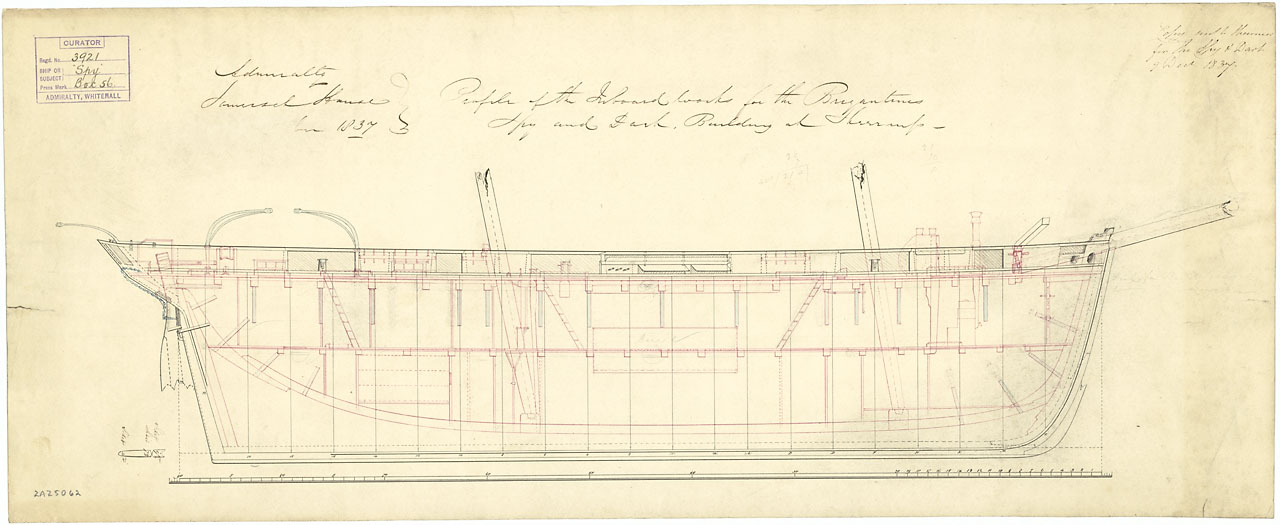 CURATOR
Regd. No. 3921
SHIP OR SUBJECT 'Spy'
Press Mark Box 56
ADMIRALTY, WHITEHALL
Admiralty
Somerset House
1837
Profile of the Inboard works for the Brigantines
Spy and Dart, Building at Sheerness
for the Spy & Dart
1837
2A25062